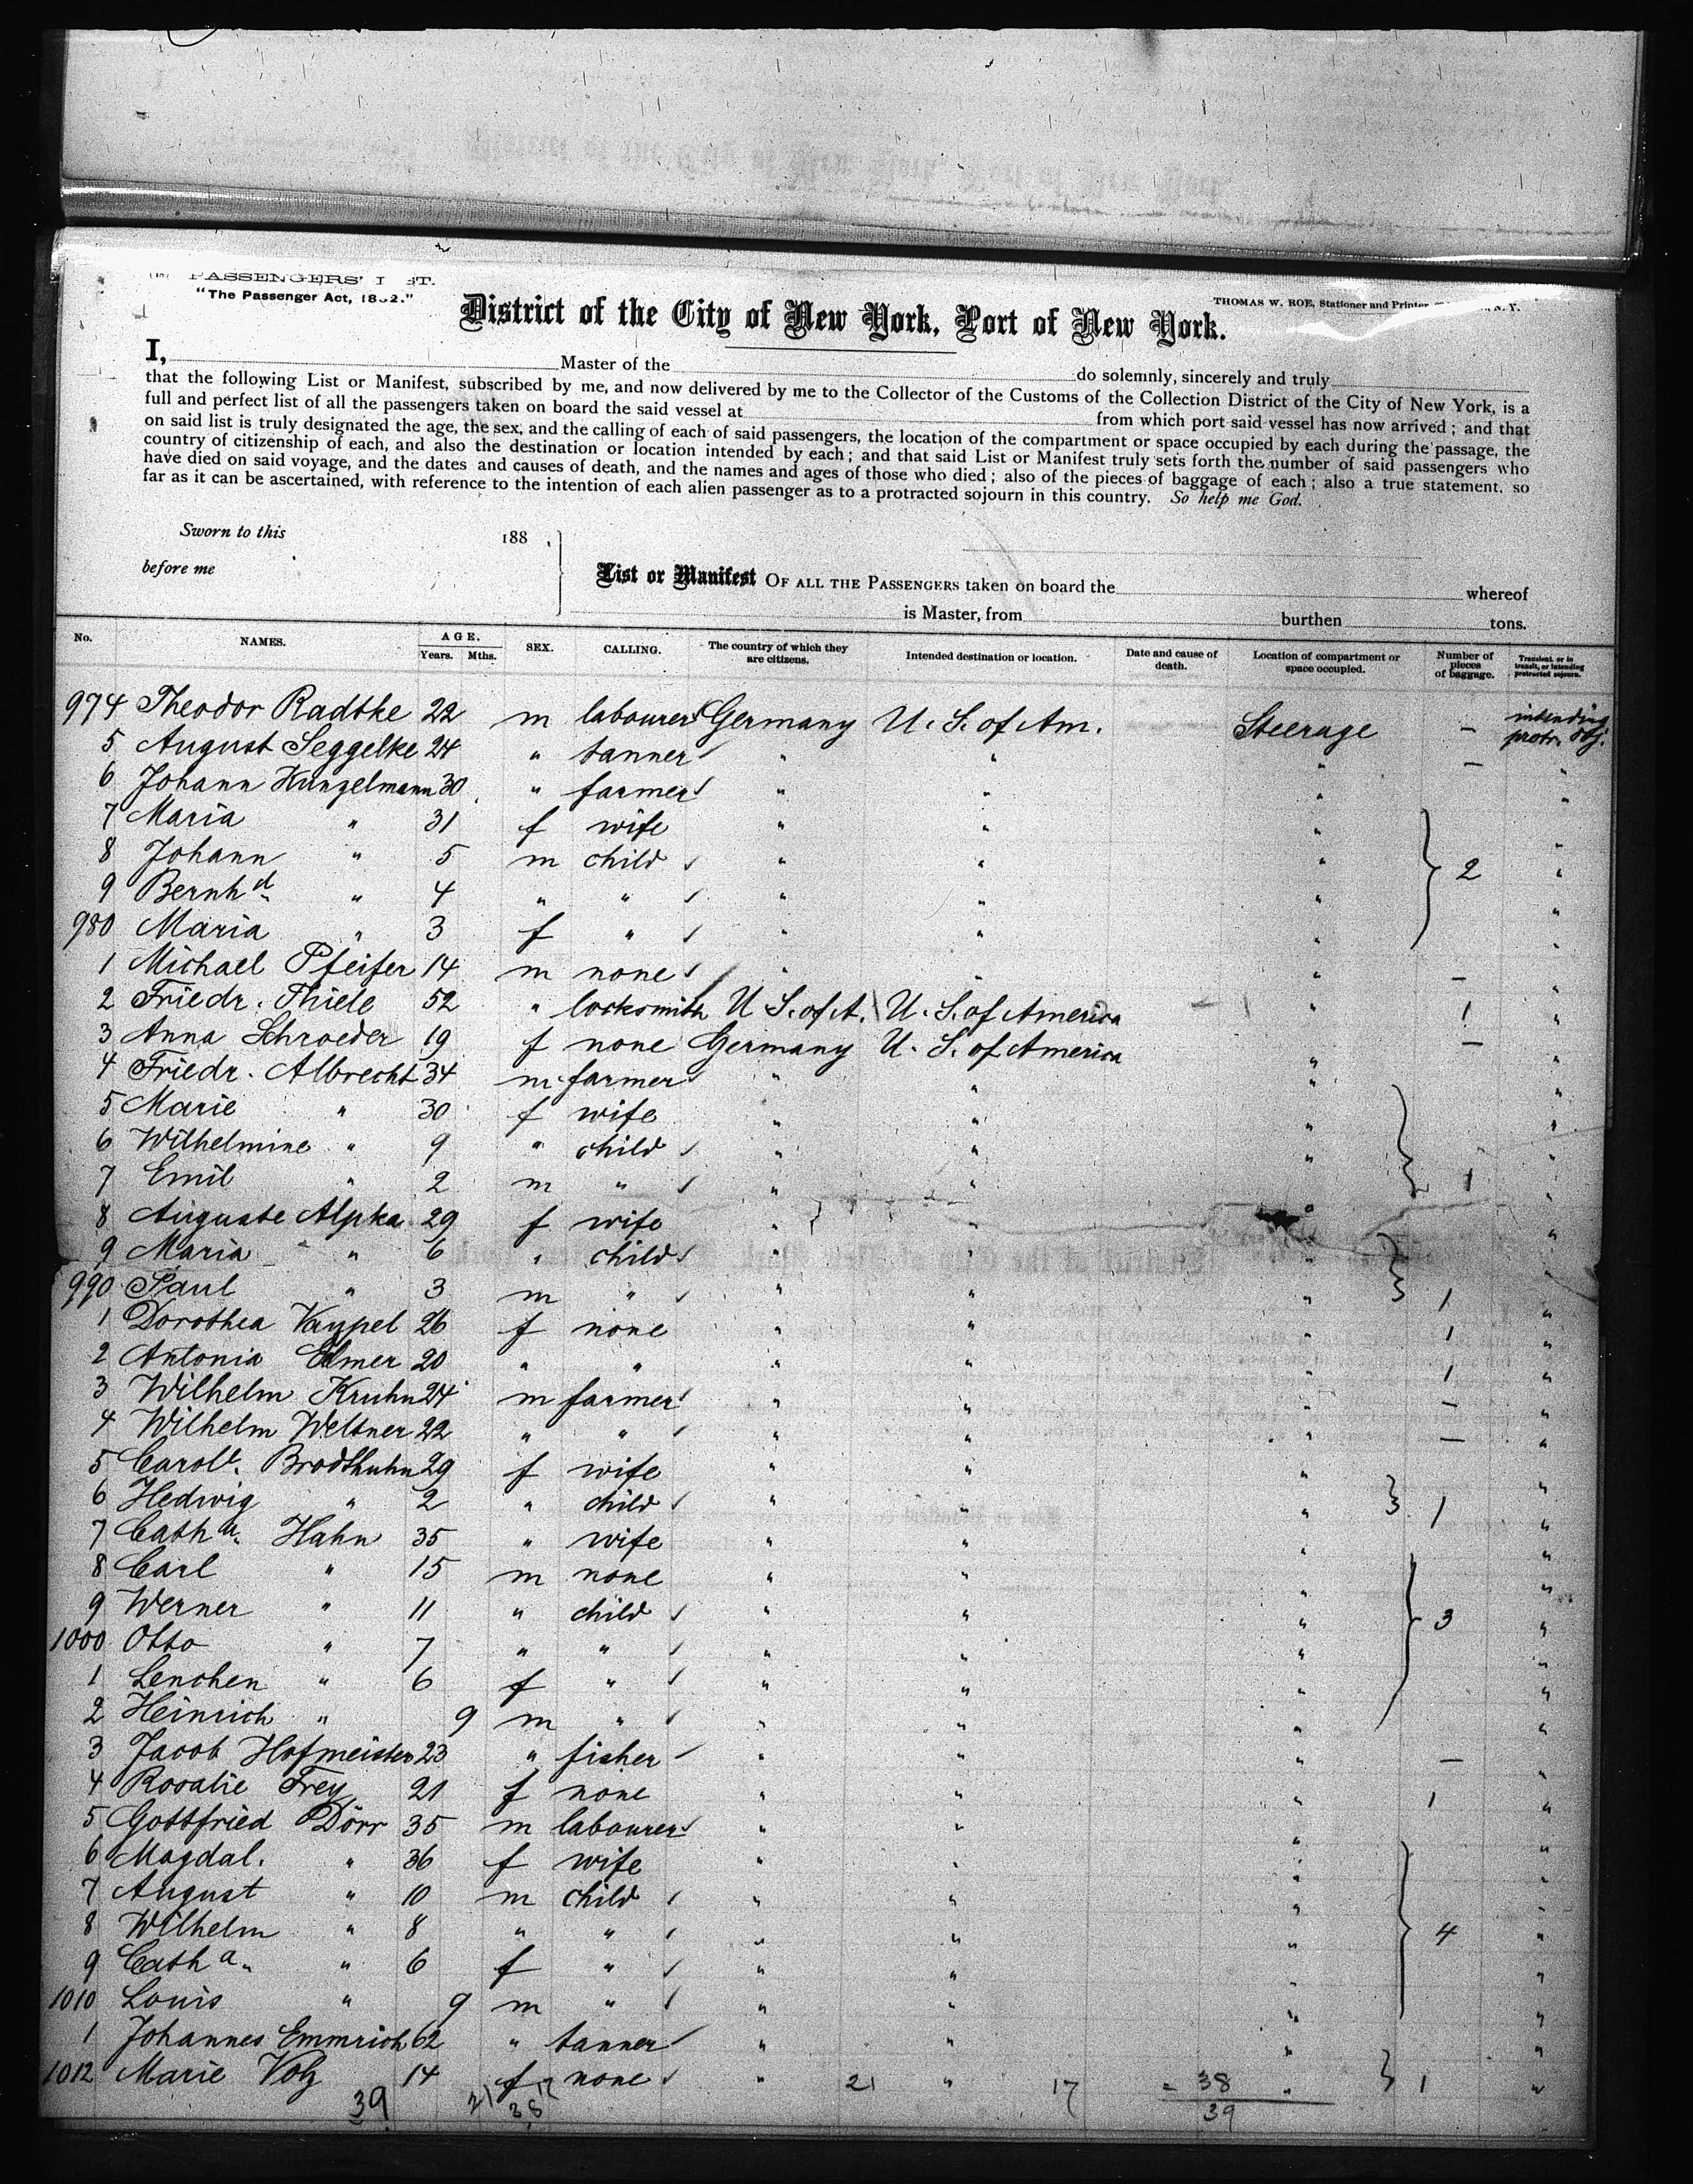 PASSENGERS' LIST.
"The Passenger Act, 1882."
THOMAS W. ROE, Stationer and Printer, N. Y.
District of the City of New York, Port of New York.
I, Master of the do solemnly, sincerely and truly
that the following List or Manifest, subscribed by me, and now delivered by me to the Collector of the Customs of the Collection District of the City of New York, is a
full and perfect list of all the passengers taken on board the said vessel at from which port said vessel has now arrived; and that
on said list is truly designated the age, the sex, and the calling of each of said passengers, the location of the compartment or space occupied by each during the passage, the
country of citizenship of each, and also the destination or location intended by each; and that said List or Manifest truly sets forth the number of said passengers who
have died on said voyage, and the dates and causes of death, and the names and ages of those who died; also of the pieces of baggage of each; also a true statement, so
far as it can be ascertained, with reference to the intention of each alien passenger as to a protracted sojourn in this country. So help me God.
Sworn to this 188 .
before me
List or Manifest OF ALL THE PASSENGERS taken on board the whereof
is Master, from burthen tons.
No. NAMES. AGE. Years. Mths. SEX. CALLING. The country of which they are citizens. Intended destination or location. Date and cause of death. Location of compartment or space occupied. Number of pieces of baggage. Transient, or in transit, or intending protracted sojourn.
974 Theodor Radtke 22 m labourer Germany U. S. of Am. Steerage - intending protr. soj.
5 August Seggelke 24 " tanner " " " - "
6 Johann Kunzelmann 30 " farmer " " " "
7 Maria " 31 f wife " " " "
8 Johann " 5 m child " " " 2 "
9 Bernhd " 4 " " " " " "
980 Maria " 3 f " " " " "
1 Michael Pfeifer 14 m none " " " - "
2 Friedr. Thiele 52 " locksmith U S. of A. U. S. of America " 1 "
3 Anna Schroeder 19 f none Germany U. S. of America " - "
4 Friedr. Albrecht 34 m farmer " " " "
5 Marie " 30 f wife " " " "
6 Wilhelmine " 9 " child " " " "
7 Emil " 2 m " " " " 1 "
8 Auguste Alpka 29 f wife " " " "
9 Maria " 6 " child " " " "
990 Paul " 3 m " " " " 1 "
1 Dorothea Vaypel 26 f none " " " 1 "
2 Antonia Elmer 20 " " " " " 1 "
3 Wilhelm Kruhn 24 m farmer " " " - "
4 Wilhelm Weltner 22 " " " " " - "
5 Carole. Brodthuhn 29 f wife " " " "
6 Hedwig " 2 " child " " " 1 "
7 Catha. Hahn 35 " wife " " " "
8 Carl " 15 m none " " " "
9 Werner " 11 " child " " " 3 "
1000 Otto " 7 " " " " " "
1 Lenchen " 6 f " " " " "
2 Heinrich " 9 m " " " " "
3 Jacob Hofmeister 23 " fisher " " " - "
4 Rosalie Frey 21 f none " " " 1 "
5 Gottfried Dörr 35 m labourer " " " "
6 Magdal. " 36 f wife " " " "
7 August " 10 m child " " " "
8 Wilhelm " 8 " " " " " 4 "
9 Catha. " 6 f " " " " "
1010 Louis " 9 m " " " " "
1 Johannes Emmrich 62 " tanner " " " "
1012 Marie Volz 14 f none " 21 " 17 = 38 " 1 "
39 21 17 38 39